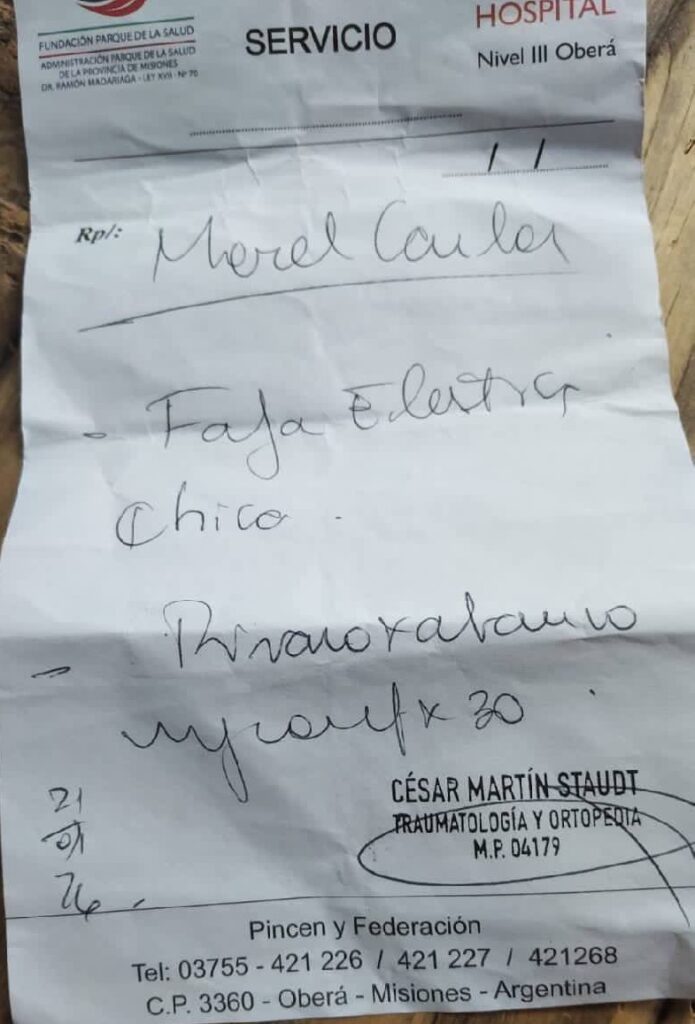 FUNDACIÓN PARQUE DE LA SALUD
ADMINISTRACIÓN PARQUE DE LA SALUD
DE LA PROVINCIA DE MISIONES
DR. RAMÓN MADARIAGA - LEY XVII - Nº 70
SERVICIO
HOSPITAL
Nivel III Oberá
/ /
Rp/:
Morel Carlos
- Faja Elastica
Chica.
- Rivaroxaban
x 30
21
01
26
CÉSAR MARTÍN STAUDT
TRAUMATOLOGÍA Y ORTOPEDIA
M.P. 04179
Pincen y Federación
Tel: 03755 - 421 226 / 421 227 / 421268
C.P. 3360 - Oberá - Misiones - Argentina